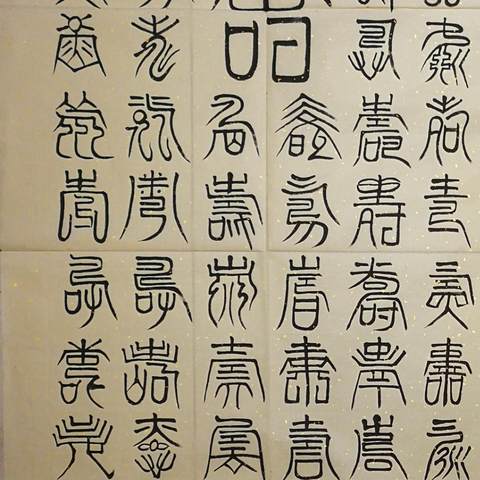 壽壽壽壽壽壽
壽壽壽壽壽壽
壽壽壽壽壽
壽壽壽壽壽
壽壽壽壽壽壽
壽壽壽壽壽壽